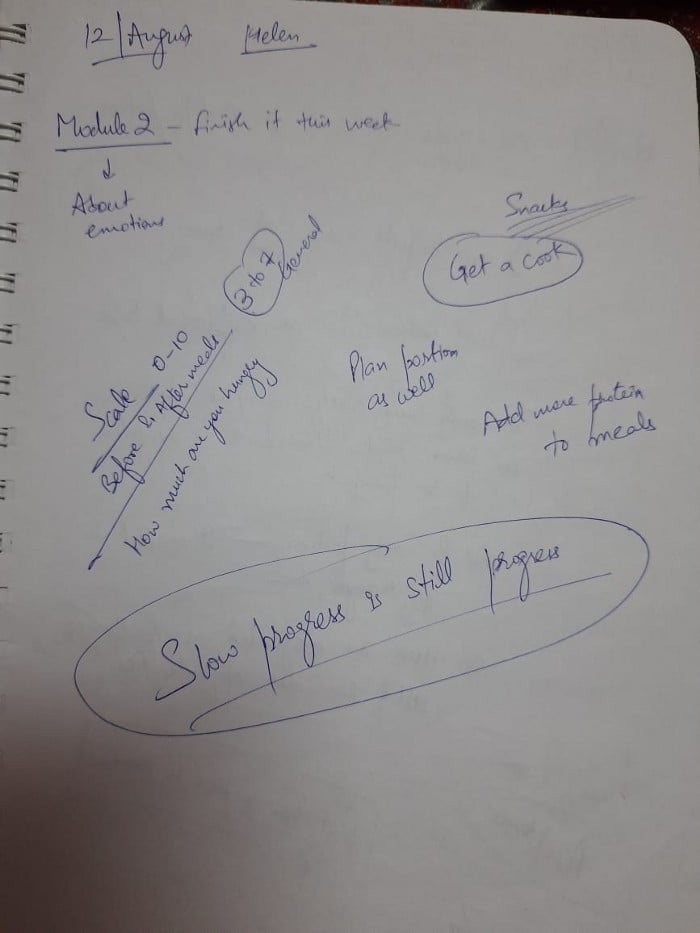 12/August Helen
Module 2 - finish it this week
↓
About
emotions
Snacks
Get a cook
3 to 7 General
Scale 0-10
Before & After meals
How much are you hungry
Plan portion
as well
Add more protein
to meals
Slow progress is still progress